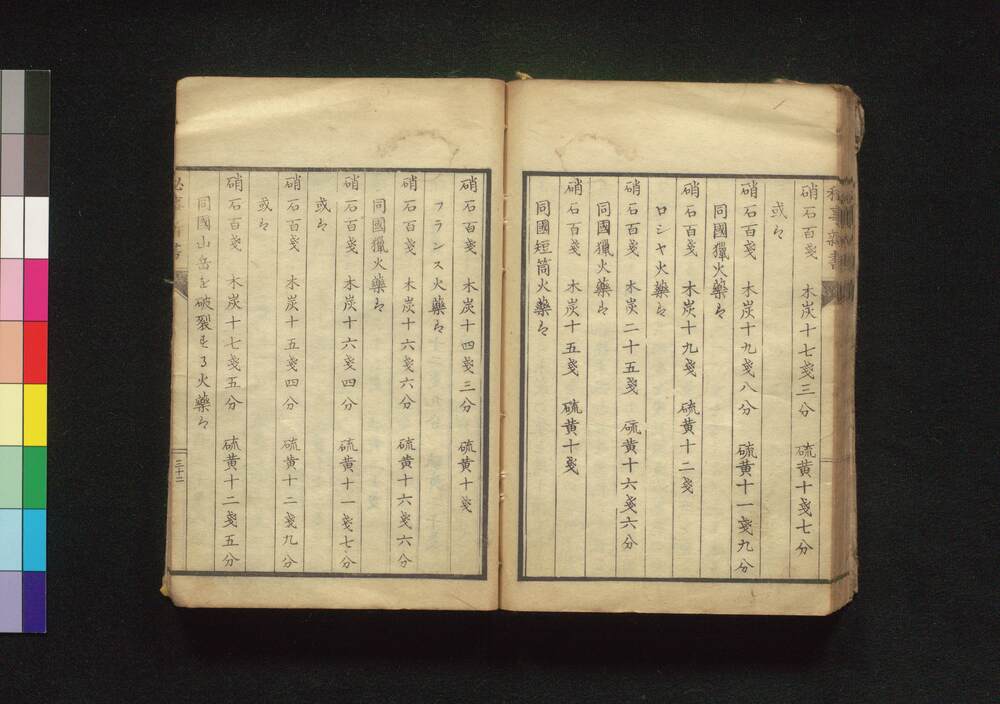 硝石百戔 木炭十七戔三分 硫黄十戔七分
或は
硝石百戔 木炭十九戔八分 硫黄十一戔九分
同國獵火藥は
硝石百戔 木炭十九戔 硫黄十二戔
ロシヤ火藥は
硝石百戔 木炭二十五戔 硫黄十六戔六分
同國獵火藥は
硝石百戔 木炭十五戔 硫黄十戔
同國短筒火藥は
硝石百戔 木炭十四戔三分 硫黄十戔
フランス火藥は
硝石百戔 木炭十六戔六分 硫黄十六戔六分
同國獵火藥は
硝石百戔 木炭十六戔四分 硫黄十一戔七分
或は
硝石百戔 木炭十五戔四分 硫黄十二戔九分
或は
硝石百戔 木炭十七戔五分 硫黄十二戔五分
同國山岳を破裂する火藥は
三十二